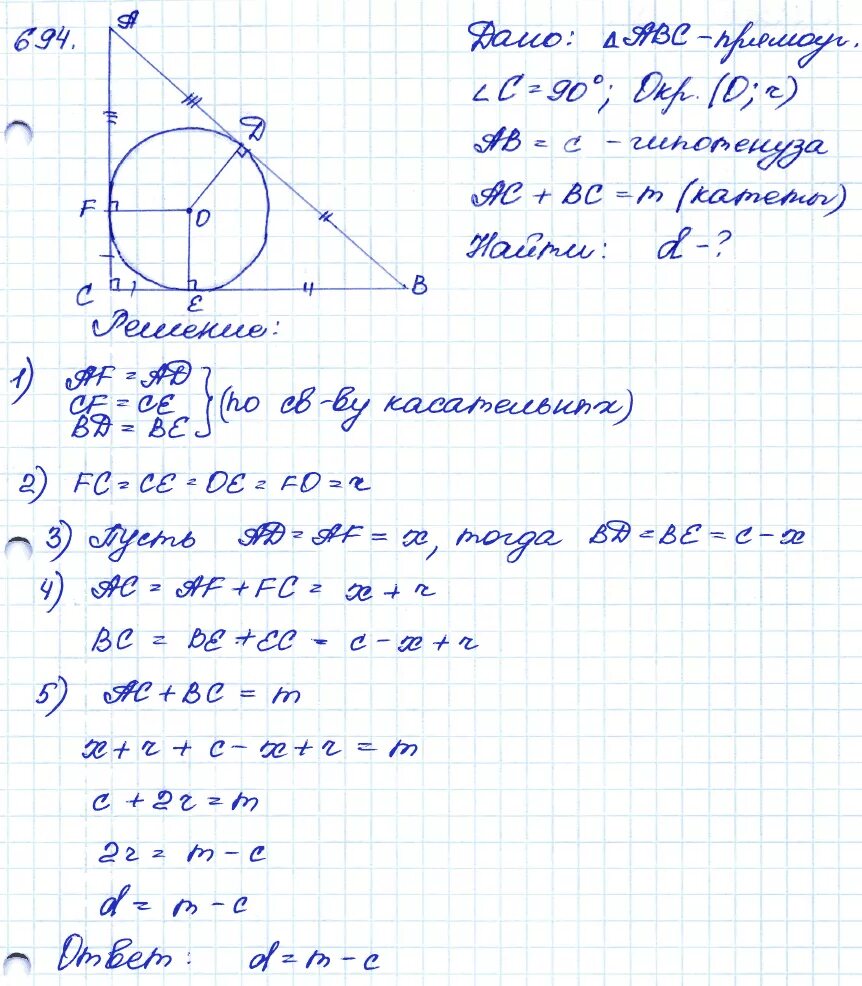 694.
A
D
F
O
C
E
B
Дано: △ABC - прямоуг.
∠C = 90°; Окр. (O; r)
AB = c - гипотенуза
AC + BC = m (катеты)
Найти: d - ?
Решение:
1) AF = AD
CF = CE
BD = BE
} (по св-ву касательных)
2) FC = CE = OE = FO = r
3) Пусть AD = AF = x, тогда BD = BE = c - x
4) AC = AF + FC = x + r
BC = BE + EC = c - x + r
5) AC + BC = m
x + r + c - x + r = m
c + 2r = m
2r = m - c
d = m - c
Ответ: d = m - c